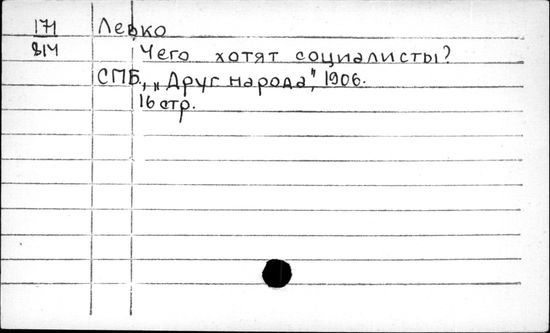 171 Левко
814 Чего хотят социалисты?
СПБ., „Друг народа", 1906.
16 стр.